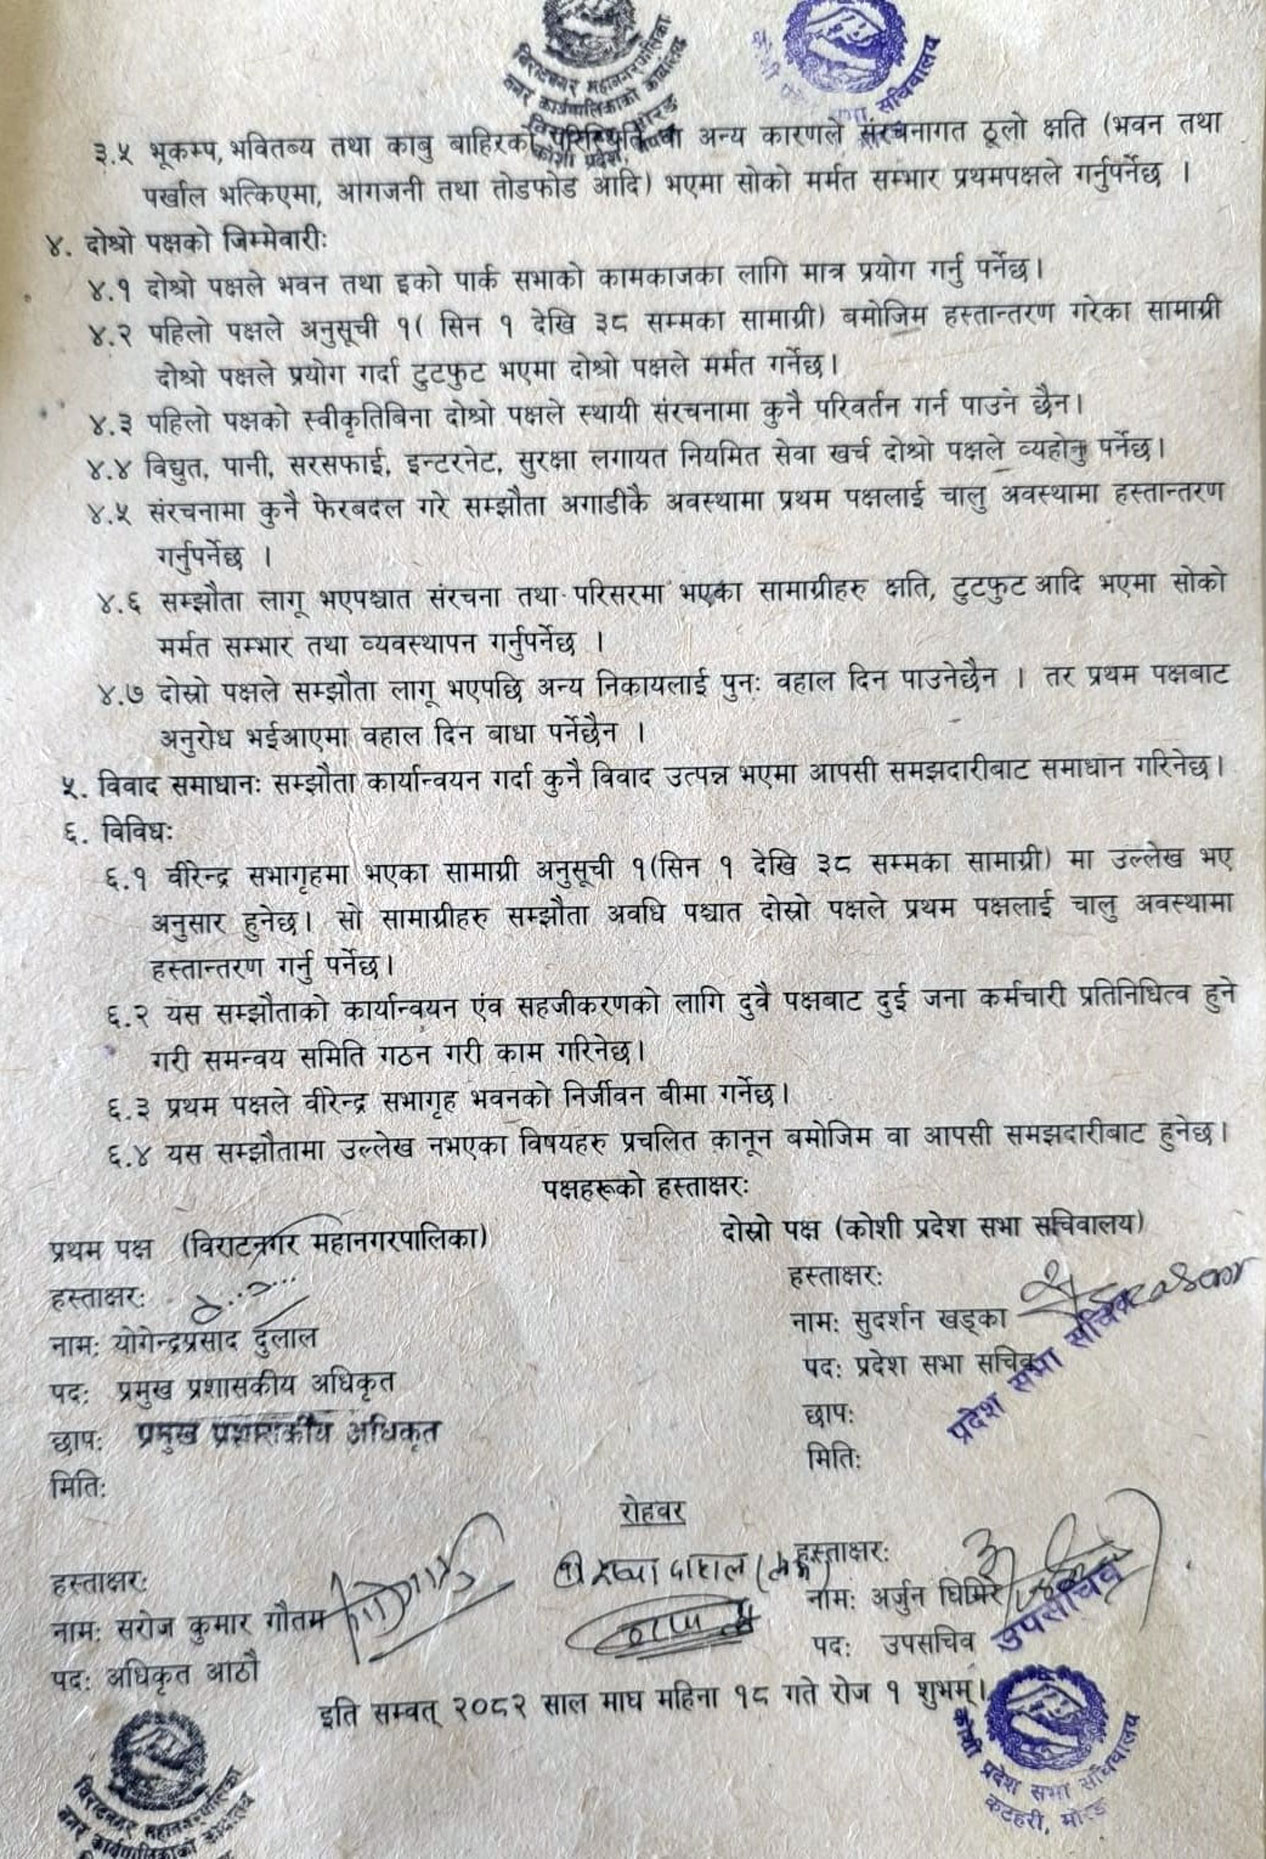 विराटनगर महानगरपालिका
नगर कार्यपालिकाको कार्यालय
विराटनगर, मोरङ
कोशी प्रदेश, नेपाल
सचिवालय
३.५ भूकम्प, भवितव्य तथा काबु बाहिरको परिस्थिति वा अन्य कारणले संरचनागत ठूलो क्षति (भवन तथा
पर्खाल भत्किएमा, आगजनी तथा तोडफोड आदि) भएमा सोको मर्मत सम्भार प्रथमपक्षले गर्नुपर्नेछ ।
४. दोश्रो पक्षको जिम्मेवारीः
४.१ दोश्रो पक्षले भवन तथा इको पार्क सभाको कामकाजका लागि मात्र प्रयोग गर्नु पर्नेछ।
४.२ पहिलो पक्षले अनुसूची १( सिन १ देखि ३८ सम्मका सामाग्री) बमोजिम हस्तान्तरण गरेका सामाग्री
दोश्रो पक्षले प्रयोग गर्दा टुटफुट भएमा दोश्रो पक्षले मर्मत गर्नेछ।
४.३ पहिलो पक्षको स्वीकृतिबिना दोश्रो पक्षले स्थायी संरचनामा कुनै परिवर्तन गर्न पाउने छैन।
४.४ विद्युत, पानी, सरसफाई, इन्टरनेट, सुरक्षा लगायत नियमित सेवा खर्च दोश्रो पक्षले व्यहोनु पर्नेछ।
४.५ संरचनामा कुनै फेरबदल गरे सम्झौता अगाडीकै अवस्थामा प्रथम पक्षलाई चालु अवस्थामा हस्तान्तरण
गर्नुपर्नेछ ।
४.६ सम्झौता लागू भएपश्चात संरचना तथा परिसरमा भएका सामाग्रीहरु क्षति, टुटफुट आदि भएमा सोको
मर्मत सम्भार तथा व्यवस्थापन गर्नुपर्नेछ ।
४.७ दोस्रो पक्षले सम्झौता लागू भएपछि अन्य निकायलाई पुनः वहाल दिन पाउनेछैन । तर प्रथम पक्षबाट
अनुरोध भईआएमा वहाल दिन बाधा पर्नेछैन ।
५. विवाद समाधानः सम्झौता कार्यान्वयन गर्दा कुनै विवाद उत्पन्न भएमा आपसी समझदारीबाट समाधान गरिनेछ।
६. विविधः
६.१ वीरेन्द्र सभागृहमा भएका सामाग्री अनुसूची १(सिन १ देखि ३८ सम्मका सामाग्री) मा उल्लेख भए
अनुसार हुनेछ। सो सामाग्रीहरु सम्झौता अवधि पश्चात दोस्रो पक्षले प्रथम पक्षलाई चालु अवस्थामा
हस्तान्तरण गर्नु पर्नेछ।
६.२ यस सम्झौताको कार्यान्वयन एंव सहजीकरणको लागि दुवै पक्षबाट दुई जना कर्मचारी प्रतिनिधित्व हुने
गरी समन्वय समिति गठन गरी काम गरिनेछ।
६.३ प्रथम पक्षले वीरेन्द्र सभागृह भवनको निर्जीवन बीमा गर्नेछ।
६.४ यस सम्झौतामा उल्लेख नभएका विषयहरु प्रचलित कानून बमोजिम वा आपसी समझदारीबाट हुनेछ।
पक्षहरूको हस्ताक्षरः
प्रथम पक्ष (विराटनगर महानगरपालिका) दोस्रो पक्ष (कोशी प्रदेश सभा सचिवालय)
हस्ताक्षरः हस्ताक्षरः
नामः योगेन्द्रप्रसाद दुलाल नामः सुदर्शन खड्का
पदः प्रमुख प्रशासकीय अधिकृत पदः प्रदेश सभा सचिव
छापः प्रमुख प्रशासकीय अधिकृत छापः प्रदेश सभा सचिव
मितिः मितिः
रोहवर
हस्ताक्षरः हस्ताक्षरः
नामः सरोज कुमार गौतम नामः अर्जुन घिमिरे
पदः अधिकृत आठौ पदः उपसचिव उपसचिव
इति सम्वत् २०८२ साल माघ महिना १८ गते रोज १ शुभम्।
विराटनगर महानगरपालिका
नगर कार्यपालिकाको कार्यालय
कोशी प्रदेश सभा सचिवालय
कटहरी, मोरङ